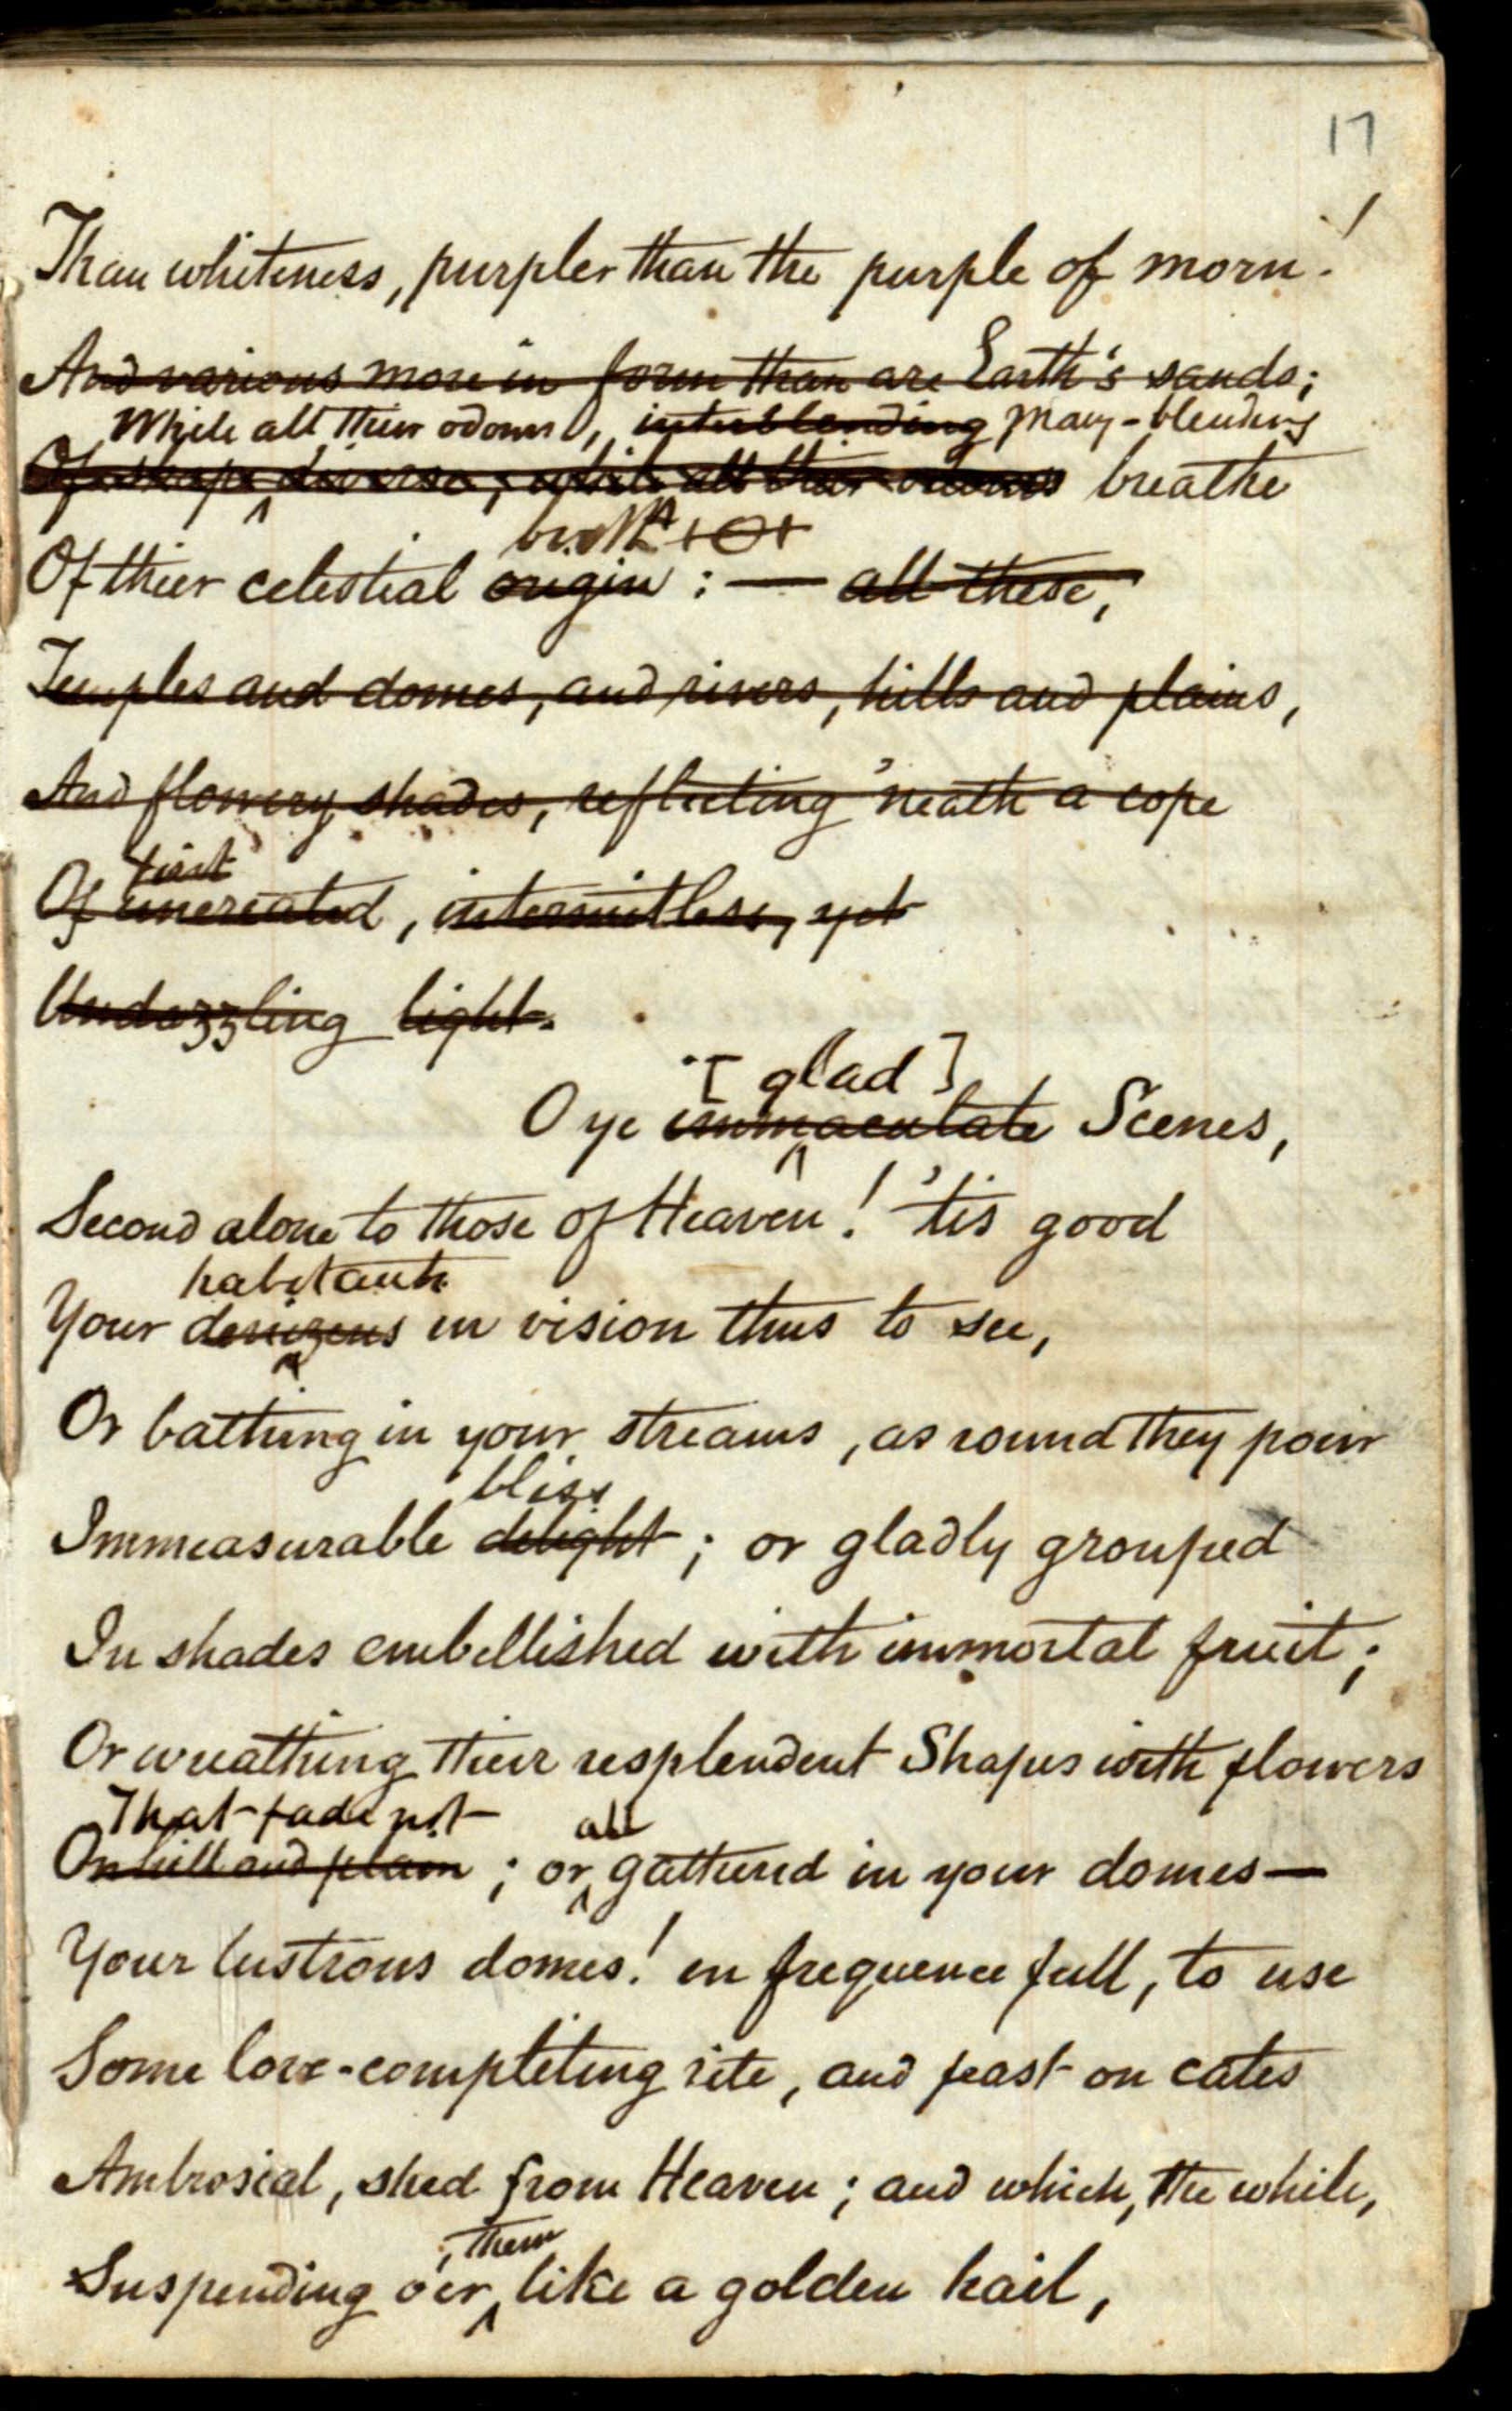 17
Than whiteness, purpler than the purple of morn!
And various more in form than are Earth's sands;
While all their odours, interblending many-blending
Of shape diverse, while all their odours breathe
birth
Of thier celestial origin : — all these,
Temples and domes, and rivers, hills and plains,
And flowery shades, reflecting 'neath a cope
first
Of uncreated, intermitless, yet
Undazzling light.
[glad]
O ye immaculate Scenes,
Second alone to those of Heaven! 'tis good
habitants
Your denizens in vision thus to see,
Or bathing in your streams, as round they pour
bliss
Immeasurable delight ; or gladly grouped
In shades embellished with immortal fruit ;
Or wreathing their resplendent Shapes with flowers
That fade not all
On hill and plain ; or gathered in your domes—
Your lustrous domes! in frequence full, to use
Some love-completing rite, and feast on cates
Ambrosial, shed from Heaven ; and which, the while,
, them
Suspending o'er, like a golden hail,